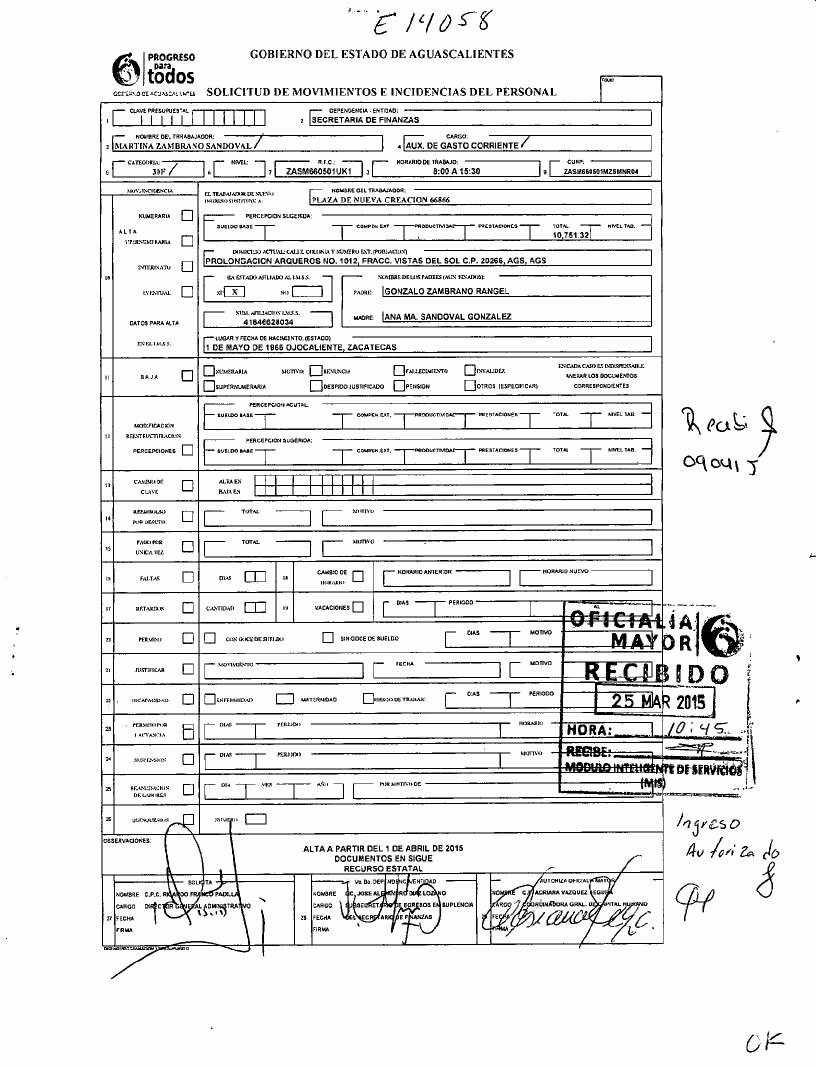 E 14058
PROGRESO para todos
GOBIERNO DEL ESTADO DE AGUASCALIENTES
SOLICITUD DE MOVIMIENTOS E INCIDENCIAS DEL PERSONAL
FOLIO
1 CLAVE PRESUPUESTAL
2 DEPENDENCIA - ENTIDAD:
SECRETARIA DE FINANZAS
3 NOMBRE DEL TRRABAJADOR:
MARTINA ZAMBRANO SANDOVAL /
4 CARGO:
AUX. DE GASTO CORRIENTE /
5 CATEGORIA: 6 NIVEL: 7 R.F.C.: HORARIO DE TRABAJO: 9 CURP:
ZASM660501UK1 8:00 A 15:30 ZASM660501MZSMNR04
MOV. INCIDENCIA
EL TRABAJADOR DE NUEVO INGRESO SUSTITUYE A:
NOMBRE DEL TRABAJADOR:
PLAZA DE NUEVA CREACION 66866
NUMERARIA
PERCEPCION SUGERIDA:
SUELDO BASE COMPEN.EXT. PRODUCTIVIDAD PRESTACIONES TOTAL NIVEL TAB.
10,751.32
ALTA
SUPERNUMERARIA
DOMICILIO ACTUAL: CALLE, COLONIA Y NUMERO EXT. (POBLACION)
PROLONGACION ARQUEROS NO. 1012, FRACC. VISTAS DEL SOL C.P. 20266, AGS, AGS
INTERINATO
10
HA ESTADO AFILIADO AL I.M.S.S.
NOMBRE DE LOS PADRES (AUN FINADOS):
EVENTUAL
SI X NO
PADRE: GONZALO ZAMBRANO RANGEL
DATOS PARA ALTA
NUM. AFILIACION I.M.S.S.
41846628034
MADRE: ANA MA. SANDOVAL GONZALEZ
EN EL I.M.S.S.
LUGAR Y FECHA DE NACIMIENTO. (ESTADO)
1 DE MAYO DE 1966 OJOCALIENTE, ZACATECAS
11 BAJA
NUMERARIA MOTIVO: RENUNCIA FALLECIMIENTO INVALIDEZ
SUPERNUMERARIA DESPIDO JUSTIFICADO PENSION OTROS (ESPECIFICAR)
EN CADA CASO ES INDISPENSABLE ANEXAR LOS DOCUMENTOS CORRESPONDIENTES
12 MODIFICACION
PERCEPCIONES
PERCEPCION ACUTAL:
SUELDO BASE COMPEN.EXT. PRODUCTIVIDAD PRESTACIONES TOTAL NIVEL TAB.
PERCEPCION SUGERIDA:
SUELDO BASE COMPEN.EXT. PRODUCTIVIDAD PRESTACIONES TOTAL NIVEL TAB.
Recibi
090415
13 CAMBIO DE CLAVE ALTA EN
BAJA EN
14 REEMBOLSO POR DESCTO. TOTAL MOTIVO
15 PAGO POR UNICA VEZ TOTAL MOTIVO
16 FALTAS DIAS 18 CAMBIO DE HORARIO HORARIO ANTERIOR HORARIO NUEVO
17 RETARDOS CANTIDAD 19 VACACIONES DIAS PERIODO AL
20 PERMISO CON GOCE DE SUELDO SIN GOCE DE SUELDO DIAS MOTIVO
21 JUSTIFICAR MOVIMIENTO FECHA MOTIVO
22 INCAPACIDAD ENFERMEDAD MATERNIDAD RIESGO DE TRABAJO DIAS PERIODO
23 PERMISO POR LACTANCIA DIAS PERIODO HORARIO
24 SUSPENSION DIAS PERIODO MOTIVO
25 REANUDACION DE LABORES DIA MES AÑO POR MOTIVO DE
26 QUINQUENIOS NUMERO
OFICIALIA MAYOR
RECIBIDO
25 MAR 2015
HORA: 10:45
RECIBE:
MODULO INTELIGENTE DE SERVICIOS
(MIS)
Ingreso
Autorizado
OBSERVACIONES:
ALTA A PARTIR DEL 1 DE ABRIL DE 2015
DOCUMENTOS EN SIGUE
RECURSO ESTATAL
SOLICITA
NOMBRE C.P.C. RICARDO FRANCO PADILLA
CARGO DIRECTOR GENERAL ADMINISTRATIVO
27 FECHA
FIRMA
Vo. Bo. DEPENDENCIA/ENTIDAD
NOMBRE LIC. JOSE ALEJANDRO DIAZ LOZANO
CARGO SUBSECRETARIO DE EGRESOS EN SUPLENCIA
28 FECHA DEL SECRETARIO DE FINANZAS
FIRMA
AUTORIZA OFICIALIA MAYOR
NOMBRE C.P. ADRIANA VAZQUEZ SEGURA
CARGO COORDINADORA GRAL. DE CAPITAL HUMANO
29 FECHA
FIRMA
OK